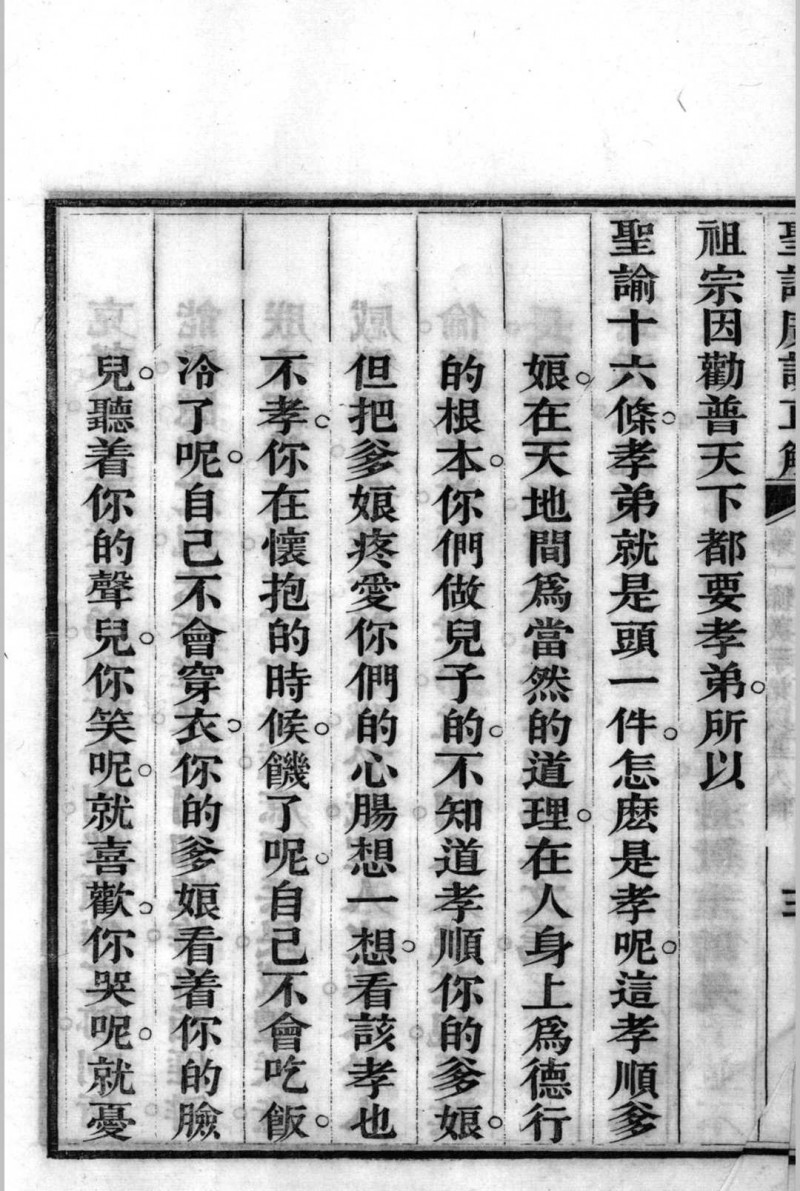 祖宗因勸普天下都要孝弟。所以
聖諭十六條。孝弟就是頭一件。怎麽是孝呢。這孝順爹
娘。在天地間爲當然的道理。在人身上爲德行
的根本。你們做兒子的。不知道孝順你的爹娘。
但把爹娘疼愛你們的心腸想一想。看該孝也
不孝。你在懷抱的時候。饑了呢。自己不會吃飯。
冷了呢。自己不會穿衣。你的爹娘看着你的臉
兒。聽着你的聲兒。你笑呢。就喜歡。你哭呢。就憂